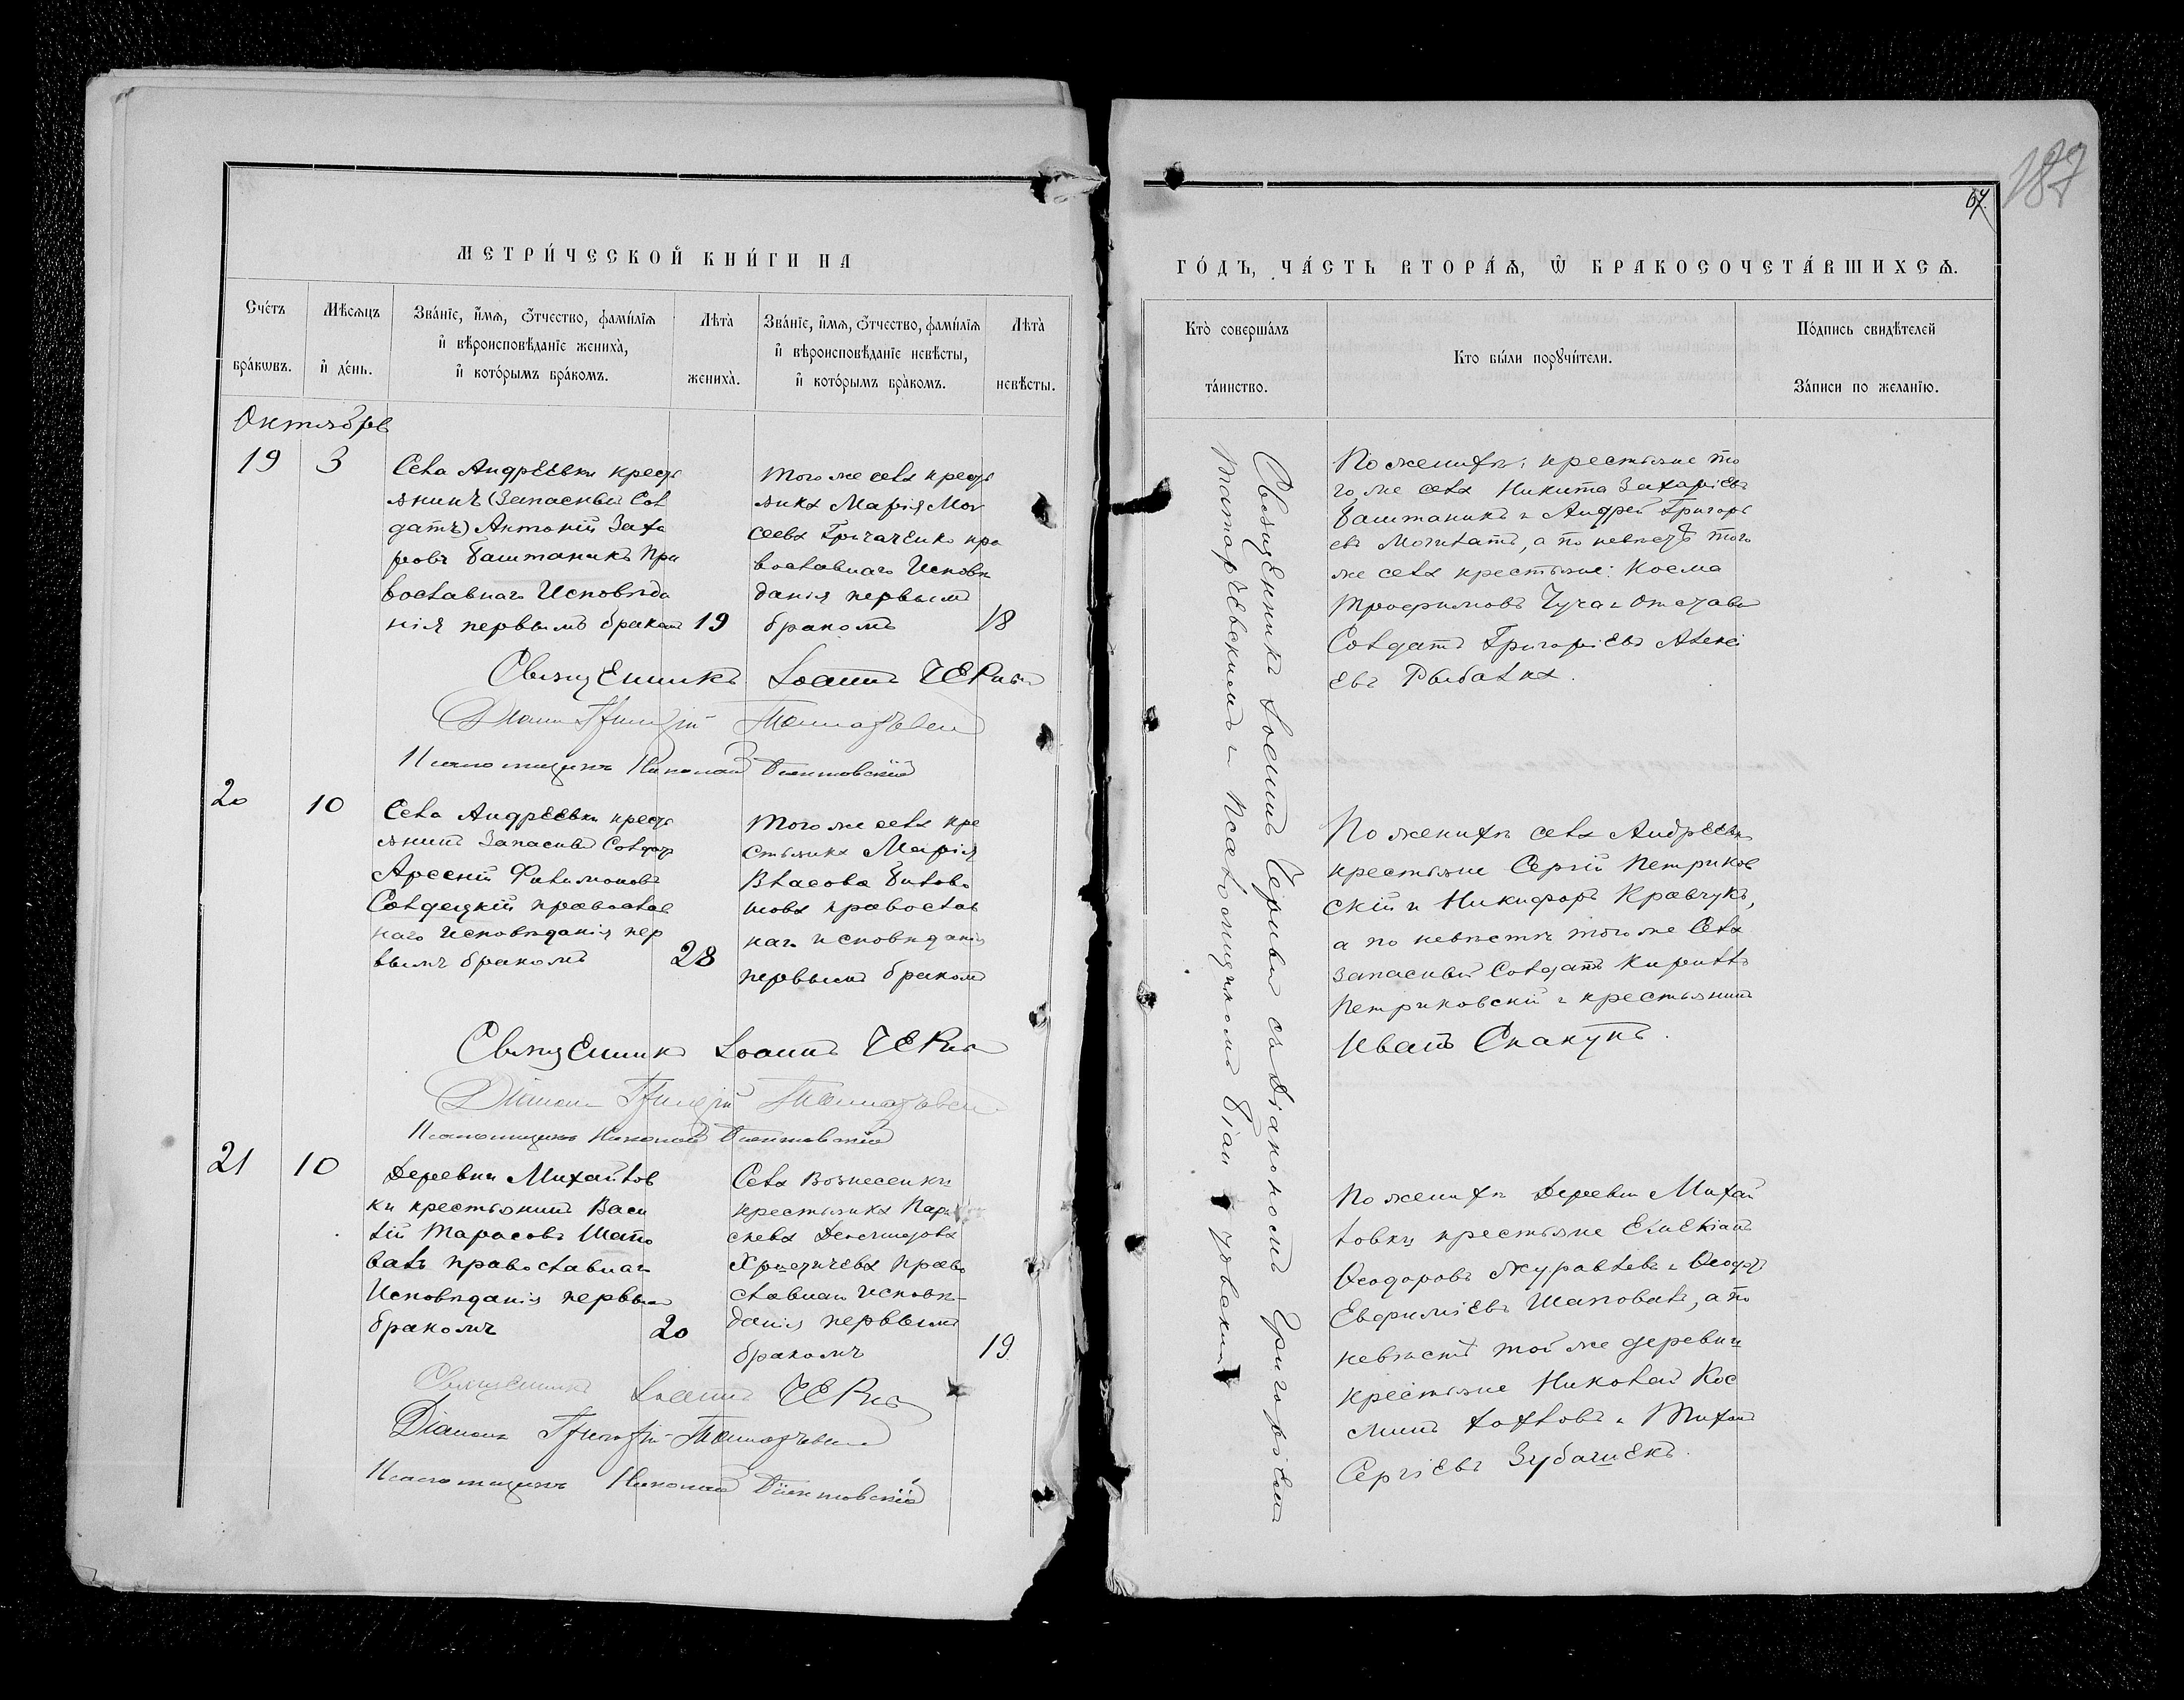 187
67.
МЕТРИ́ЧЕСКОЙ КНИ́ГИ НА
Сче́тъ бра́кѡвъ.
Мѣсѧцъ и҆ де́нь.
Зва́нїе, и҆́мѧ, ѻ҆́тчество, фами́лїѧ
и҆ вѣроисповѣ́данїе жениха̀,
и҆ кото́рымъ бра́комъ.
Лѣта̀ жениха̀.
Зва́нїе, и҆́мѧ, ѻ҆́тчество, фами́лїѧ
и҆ вѣроисповѣ́данїе невѣ́сты,
и҆ кото́рымъ бра́комъ.
Лѣта̀ невѣ́сты.
Октябрь
19
3
Села Андрѣевки кресть
янинъ (Запасный Сол
датъ) Антоній Заха
ровъ Баштаникъ Пра
вославнаго Исповѣда
нія первымъ бракомъ
19
Того же села кресть
янка Марія Мои
сеева Григаченко пра
вославнаго Исповѣ
данія первымъ
бракомъ
18
Священникъ Іоаннъ
Діаконъ Григорій
Псаломщикъ Николай
20
10
Села Андрѣевки кресть
янинъ Запасный Солдатъ
Арсеній Филимоновъ
Солдацкій православ
наго Исповѣданія пер
вымъ бракомъ
28
Того же села кре
стьянка Марія
Власова
православ
наго исповѣданія
первымъ бракомъ
Священникъ Іоаннъ
Діаконъ Григорій
Псаломщикъ Николай
21
10
Деревни Михайлов
ки крестьянинъ Васи
лій Тарасовъ Шапо
валъ православнаго
Исповѣданія первымъ
бракомъ
20
Села Вознесенки
крестьянка Пара
скева
право
славнаго Исповѣ-
данія первымъ
бракомъ
19
Священникъ Іоаннъ
Діаконъ Григорій
Псаломщикъ Николай
ГО́ДЪ, ЧА́СТЬ ВТОРА́Ѧ, Ѽ БРАКОСОЧЕТА́ВШИХСѦ.
Кто̀ соверша́лъ та́инство.
Кто бы́ли порꙋчи́тели.
По́дпись свидѣ́телей
За́писи по жела́нїю.
Священникъ Іоаннъ съ Діакономъ Григоріемъ
и Псаломщикомъ
По женихѣ: крестьяне то
го же села Никита Захаріевъ
Баштаникъ и Андрей Григорь
евъ Могилатъ, а по невѣстѣ того
же села крестьяне: Косма
Трофимовъ Чуча и Отставн
Солдатъ Григоріевъ Алексі
евъ Рыбалка.
По женихѣ села Андрѣевки
крестьяне Сергій Петриков
скій и Никифоръ Кравчукъ,
а по невѣстѣ того же Села
запасный Солдатъ Кириллъ
Петриковскій и крестьянинъ
Иванъ Скакунъ.
По женихѣ Деревни Михай
ловки крестьяне
Ѳеодоровъ Журавлевъ и Ѳеодоръ
Евфиміевъ Шаповалъ, а по
невѣстѣ той же деревни
крестьяне Николай Кос
минъ Хохловъ и Михаил
Сергіевъ